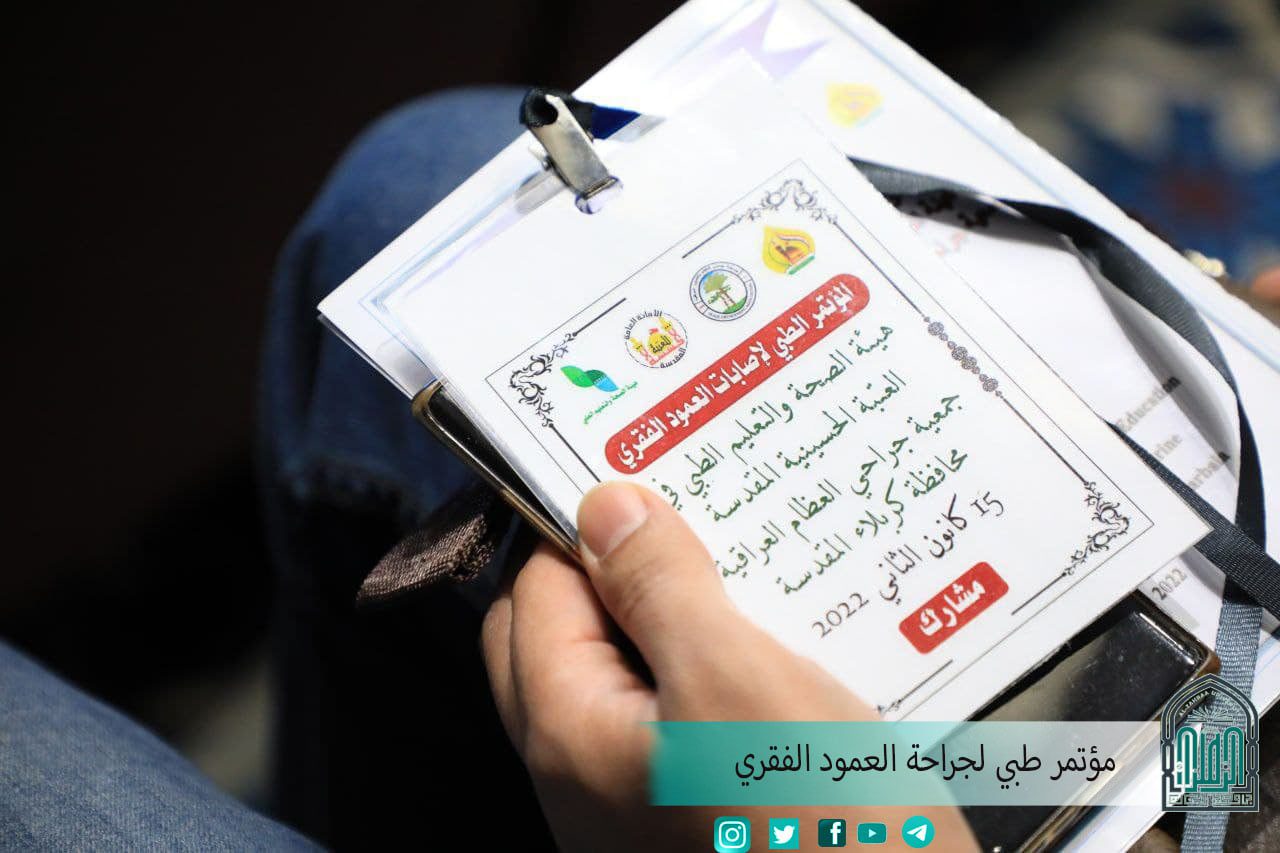 المؤتمر الطبي لإصابات العمود الفقري
هيئة الصحة والتعليم الطبي في
العتبة الحسينية المقدسة
جمعية جراحي العظام العراقية
محافظة كربلاء المقدسة
15 كانون الثاني 2022
مشارك
الأمانة العامة
للعتبة
المقدسة
Education
2022
مؤتمر طبي لجراحة العمود الفقري